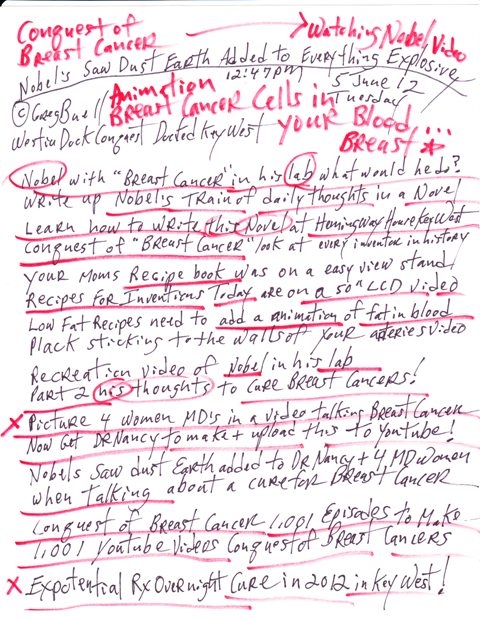 Conquest of
Breast Cancer
Watching Nobel Video
Nobel's Saw Dust Earth Added to Everything Explosive
12:47pm
5 June 12
Tuesday
Animation
Breast Cancer Cells in
Your Blood...
Breast
© Greg Buell
Westin Dock Conquest Docked Key West
Nobel with "Breast Cancer" in his lab what would he do?
Write up Nobel's Train of daily thoughts in a Novel
Learn how to write this Novel at Hemingway House Key West
Conquest of "Breast Cancer" look at every inventor in history
Your Moms Recipe book was on a easy view stand
Recipes for Inventions Today are on a 50" LCD video
Low Fat Recipes need to add a animation of fat in blood
Plack sticking to the walls of your arteries video
Recreation video of Nobel in his lab
Part 2 his thoughts to cure Breast Cancers!
X Picture 4 women MD's in a video talking Breast Cancer
Now Get DR Nancy to make + upload this to Youtube!
Nobels Saw dust Earth added to DR Nancy + 4 MD women
when talking about a cure for Breast Cancer
Conquest of Breast Cancer 1,001 Episodes to Make
1,001 Youtube Videos Conquest of Breast Cancers
X Expotential Rx Overnight Cure in 2012 in Key West!